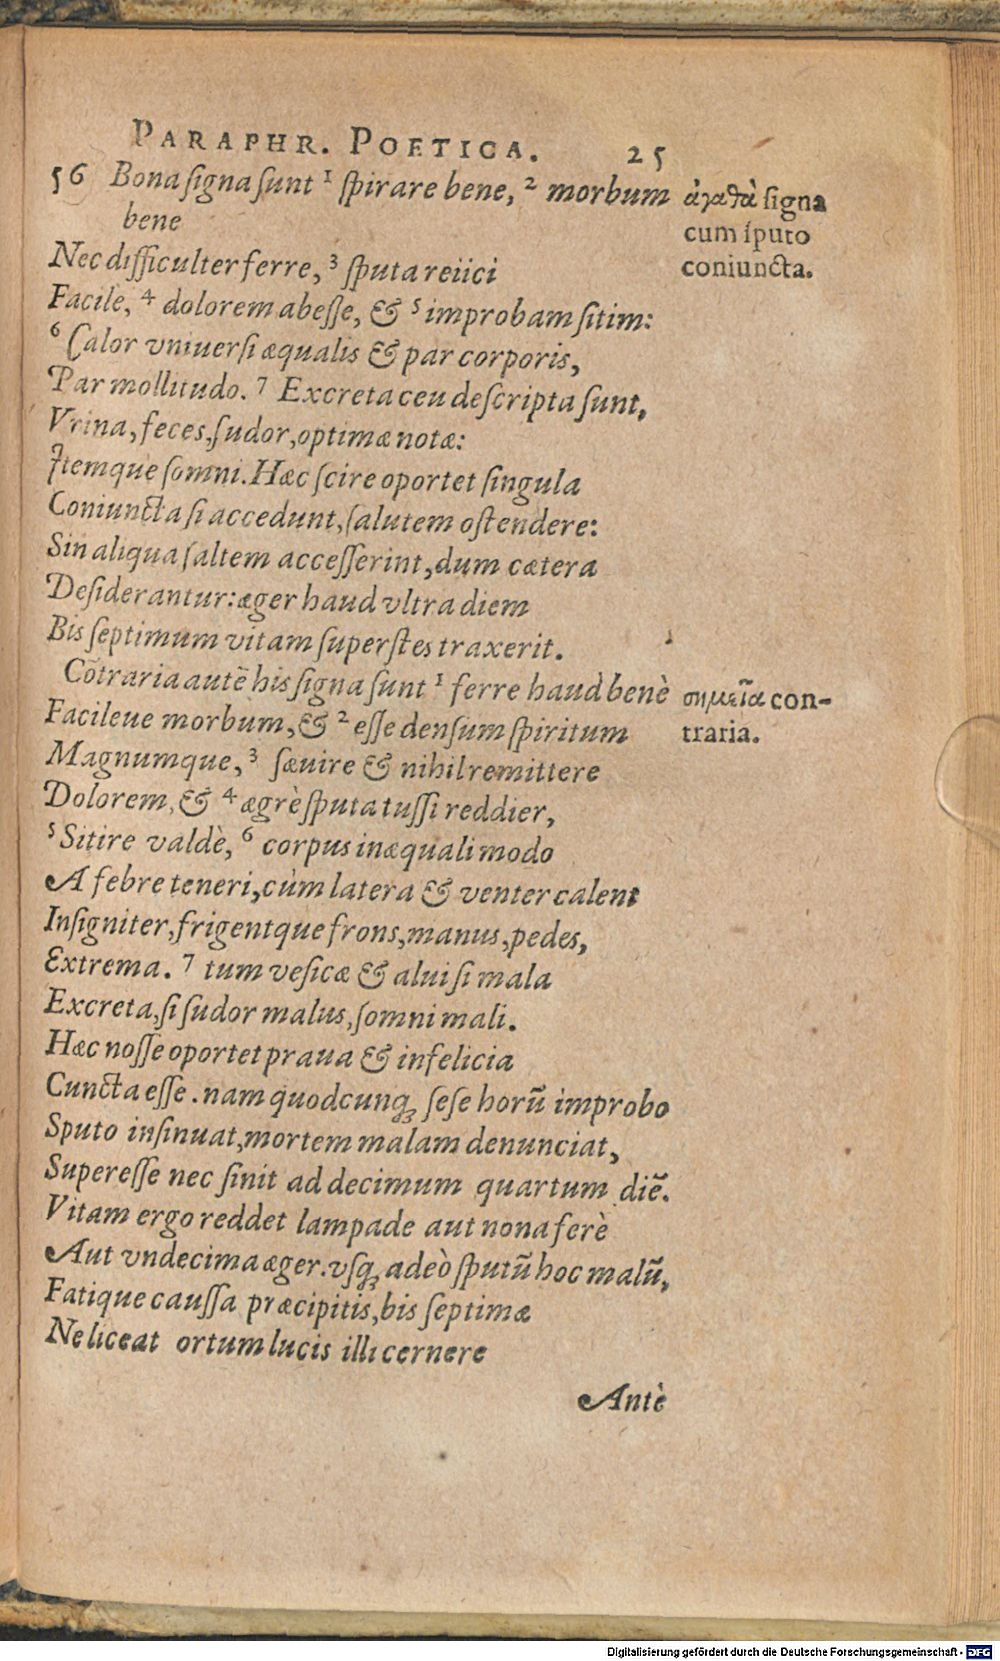 PARAPHR. POETICA. 25
56 Bona signa sunt ¹ spirare bene, ² morbum
bene
Nec difficulter ferre, ³ sputa reiici
Facile, ⁴ dolorem abesse, & ⁵ improbam sitim:
⁶ Calor vniuersi æqualis & par corporis,
Par mollitudo. ⁷ Excreta ceu descripta sunt,
Vrina, feces, sudor, optimæ notæ:
Itemque somni. Hæc scire oportet singula
Coniuncta si accedunt, salutem ostendere:
Sin aliqua saltem accesserint, dum cætera
Desiderantur: æger haud vltra diem
Bis septimum vitam superstes traxerit.
Cõtraria autẽ his signa sunt ¹ ferre haud benè
Facileue morbum, & ² esse densum spiritum
Magnumque, ³ sæuire & nihil remittere
Dolorem, & ⁴ ægrè sputa tussi reddier,
⁵ Sitire valdè, ⁶ corpus inæquali modo
A febre teneri, cùm latera & venter calent
Insigniter, frigentque frons, manus, pedes,
Extrema. ⁷ tum vesicæ & alui si mala
Excreta, si sudor malus, somni mali.
Hæc nosse oportet praua & infelicia
Cuncta esse. nam quodcunq; sese horũ improbo
Sputo insinuat, mortem malam denunciat,
Superesse nec sinit ad decimum quartum diẽ.
Vitam ergo reddet lampade aut nona ferè
Aut vndecima æger. vsq; adeò sputũ hoc malũ,
Fatique caussa præcipitis, bis septimæ
Ne liceat ortum lucis illi cernere
Antè
ἀγαθὰ signa
cum sputo
coniuncta.
σημεῖα con-
traria.
Digitalisierung gefördert durch die Deutsche Forschungsgemeinschaft - DFG